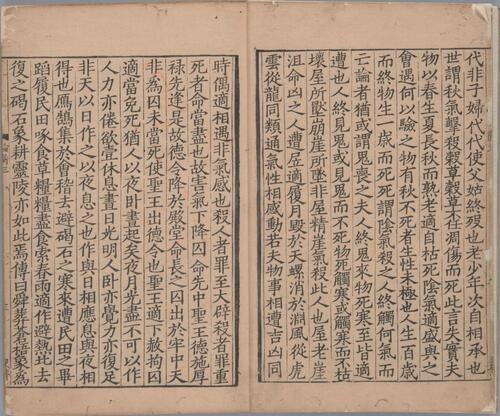 代非子婦代代使父姑終歿也老少年次自相承也
世謂秋氣擊殺穀草穀草不任凋傷而死此言失實夫
物以春生夏長秋而熟老適自枯死陰氣適盛與之
會遇何以驗之物有秋不死者生性未極也人生百歲
而終物生一歲而死死謂陰氣殺之人終觸何氣而
亡論者猶或謂鬼喪之夫人終鬼來物死寒至皆適
遭也人終見鬼或見鬼而不死物死觸寒或觸寒而不枯
壞屋所壓崩崖所墜非屋精崖氣殺此人也屋老崖
沮命凶之人遭屈適履月毀於天螺消於淵風從虎
雲從龍同類通氣性相感動若夫物事相遭吉凶同
時偶適相遇非氣感也殺人者罪至大辟殺者罪重
死者命當盡也故害氣下降囚命先中聖王德施厚
祿先逢是故德令降於殿堂命長之囚出於牢中天
非為囚未當死使聖王出德令也聖王適下赦拘囚
適當免死猶人以夜卧晝起矣夜月光盡不可以作
人力亦倦欲壹休息晝日光明人卧亦覺力亦復足
非天以日作之以夜息之也作與日相應息與夜相
得也鴈鵠集於會稽去避碣石之寒來遭民田之畢
蹈履民田啄食草糧糧盡食索春雨適作避熱北去
復之碣石象耕靈陵亦如此焉傳曰舜葬蒼梧象為